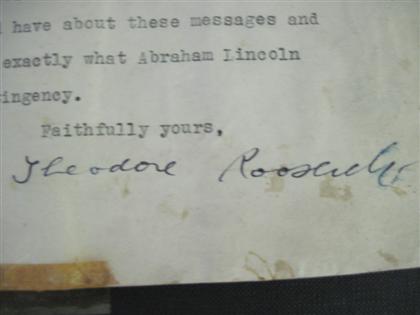 have about these messages and
exactly what Abraham Lincoln
ingency.
Faithfully yours,
Theodore Roosevelt